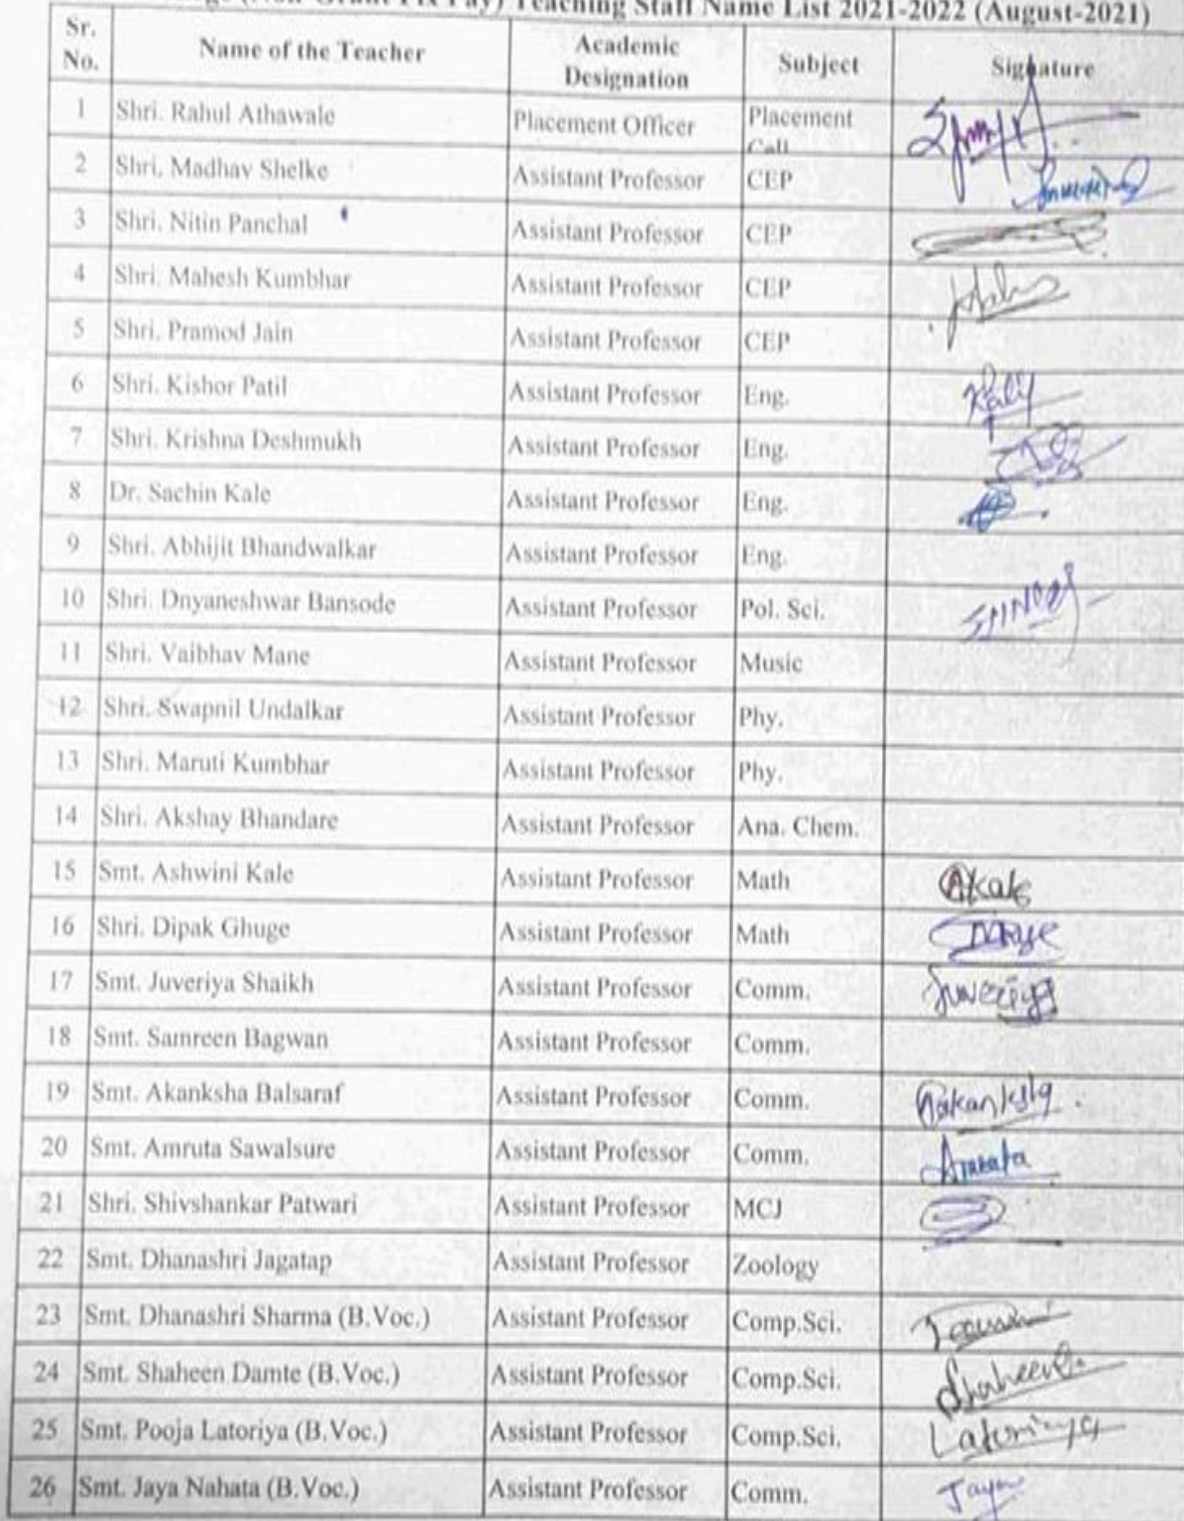 (Non-Grant Fix Pay) Teaching Staff Name List 2021-2022 (August-2021)
Sr. No. Name of the Teacher Academic Designation Subject Signature
1 Shri. Rahul Athawale Placement Officer Placement Call
2 Shri. Madhav Shelke Assistant Professor CEP
3 Shri. Nitin Panchal Assistant Professor CEP
4 Shri. Mahesh Kumbhar Assistant Professor CEP
5 Shri. Pramod Jain Assistant Professor CEP
6 Shri. Kishor Patil Assistant Professor Eng.
7 Shri. Krishna Deshmukh Assistant Professor Eng.
8 Dr. Sachin Kale Assistant Professor Eng.
9 Shri. Abhijit Bhandwalkar Assistant Professor Eng.
10 Shri. Dnyaneshwar Bansode Assistant Professor Pol. Sci.
11 Shri. Vaibhav Mane Assistant Professor Music
12 Shri. Swapnil Undalkar Assistant Professor Phy.
13 Shri. Maruti Kumbhar Assistant Professor Phy.
14 Shri. Akshay Bhandare Assistant Professor Ana. Chem.
15 Smt. Ashwini Kale Assistant Professor Math Akale
16 Shri. Dipak Ghuge Assistant Professor Math
17 Smt. Juveriya Shaikh Assistant Professor Comm. Juveriya
18 Smt. Samreen Bagwan Assistant Professor Comm.
19 Smt. Akanksha Balsaraf Assistant Professor Comm. Aakanksha
20 Smt. Amruta Sawalsure Assistant Professor Comm. Amruta
21 Shri. Shivshankar Patwari Assistant Professor MCJ
22 Smt. Dhanashri Jagatap Assistant Professor Zoology
23 Smt. Dhanashri Sharma (B.Voc.) Assistant Professor Comp.Sci.
24 Smt. Shaheen Damte (B.Voc.) Assistant Professor Comp.Sci. Shaheen
25 Smt. Pooja Latoriya (B.Voc.) Assistant Professor Comp.Sci. Latoriya
26 Smt. Jaya Nahata (B.Voc.) Assistant Professor Comm. Jaya